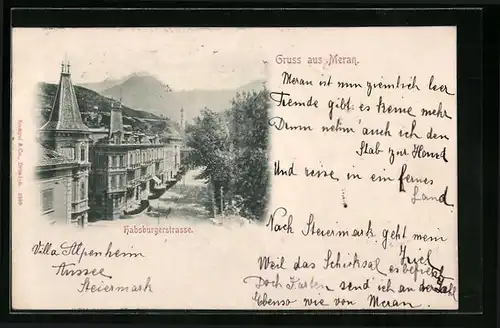 Gruss aus Meran.
Meran ist nun ziemlich leer
Fremde gibt es keine mehr
Drum nehm' auch ich den
Stab zur Hand
Und reise, in ein fernes
Land.
Nach Steiermark geht mein
Ziel
Weil das Schicksal es
Doch Karten send' ich an der Zahl
Ebenso wie von Meran.
Habsburgerstrasse.
Villa Alpenheim
Aussee
Steiermark
Stengel & Co., Dresden